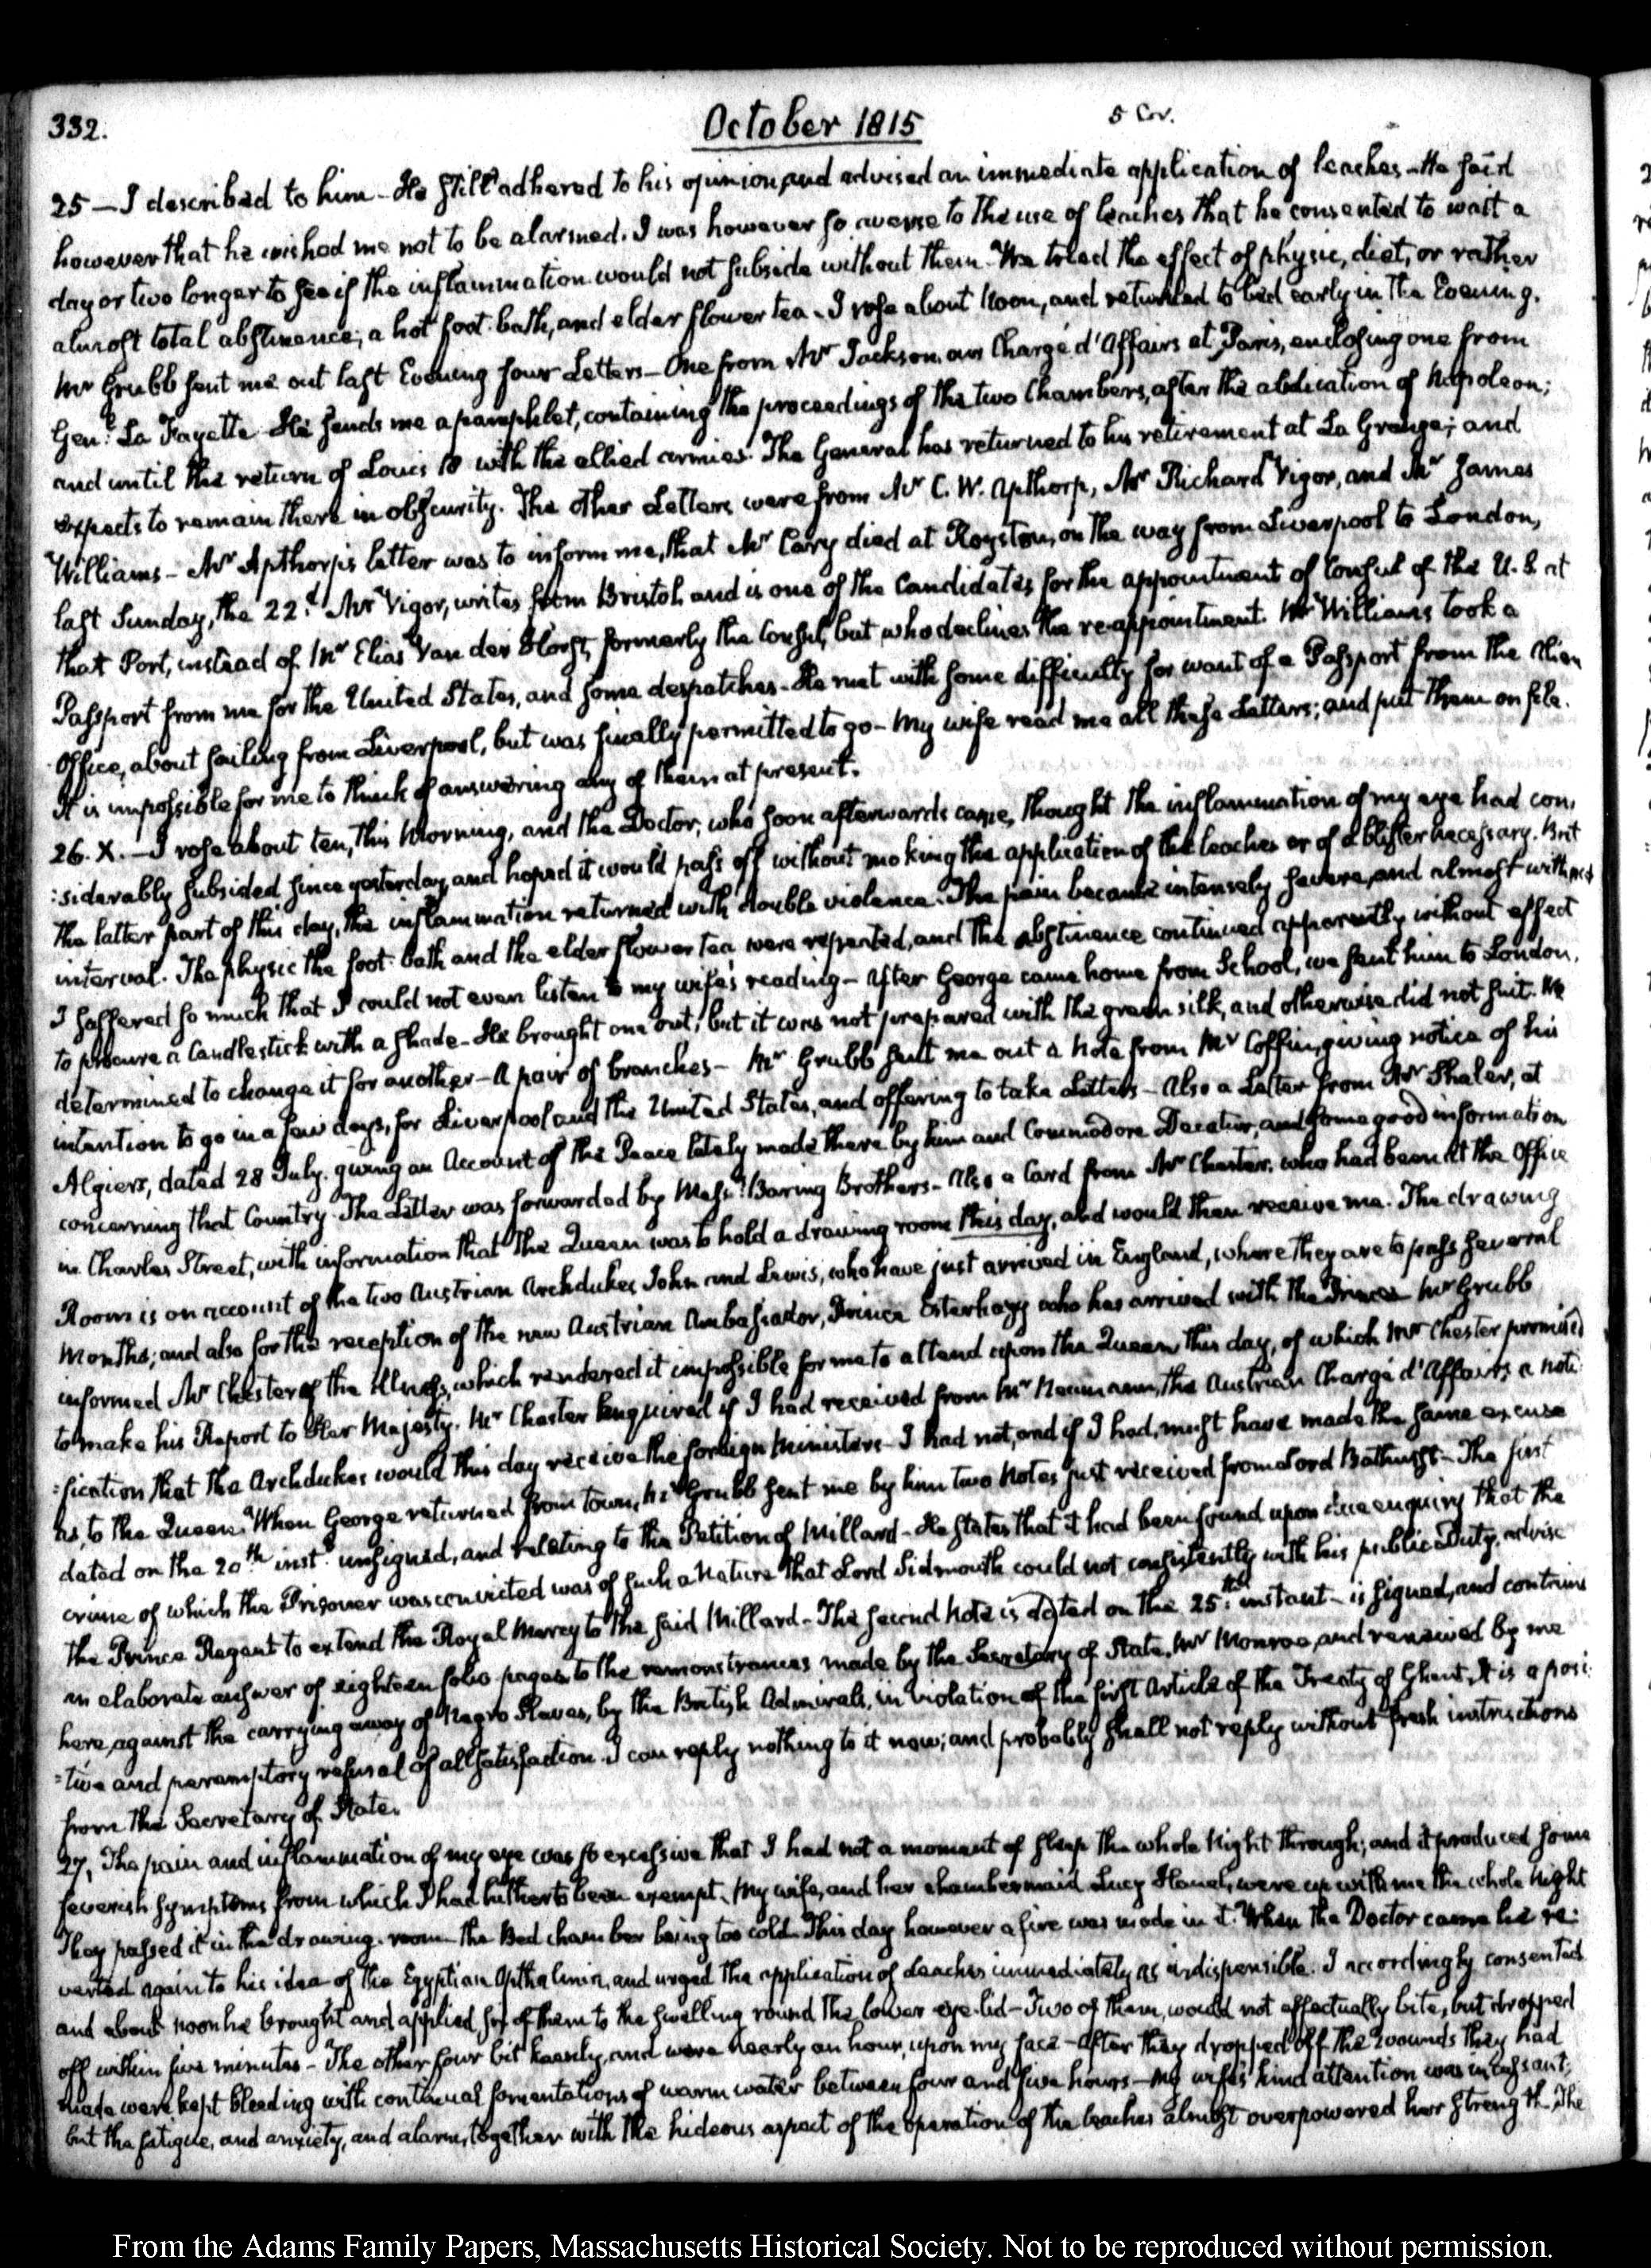 332.
October 1815
5 Cov.
25 — I described to him - He still adhered to his opinion, and advised an immediate application of leaches - He said
however that he wished me not to be alarmed. I was however so averse to the use of leaches that he consented to wait a
day or two longer to see if the inflammation would not subside without them - We tried the effect of physic, diet, or rather
almost total abstinence; a hot foot-bath, and elder flower tea - I rose about Noon, and returned to bed early in the Evening.
Mr Grubb sent me out last Evening four Letters - One from Mr Jackson, our Chargé d'Affairs at Paris, enclosing one from
Genl: La Fayette - He sends me a pamphlet, containing the proceedings of the two Chambers, after the abdication of Napoleon;
and until the return of Louis 18 with the allied armies. The General has returned to his retirement at La Grange; and
expects to remain there in obscurity. The other Letters were from Mr C. W. Apthorp, Mr Richard Vigor, and Mr James
Williams - Mr Apthorp's letter was to inform me, that Mr Cary died at Royston, on the way from Liverpool to London,
last Sunday, the 22d. Mr Vigor, writes from Bristol, and is one of the Candidates for the appointment of Consul of the U.S. at
that Port, instead of Mr Elias Van der Horst, formerly the Consul, but who declines the re-appointment. Mr Williams took a
Passport from me for the United States, and some despatches - He met with some difficulty for want of a Passport from the Alien
Office, about sailing from Liverpool, but was finally permitted to go - My wife read me all these Letters; and put them on file.
It is impossible for me to think of answering any of them at present.
26. X. — I rose about ten, this Morning, and the Doctor, who soon afterwards came, thought the inflammation of my eye had con-
:siderably subsided since yesterday, and hoped it would pass off without making the application of the leaches or of a blister necessary. But
the latter part of this day, the inflammation returned with double violence. The pain became intensely severe, and almost without
interval. The physic the foot-bath and the elder flower tea, were repeated, and the abstinence continued apparently without effect
I suffered so much that I could not even listen to my wife's reading - After George came home from School, we sent him to London,
to procure a Candlestick with a shade - He brought one out, but it was not prepared with the green silk, and otherwise did not suit. We
determined to change it for another - A pair of branches - Mr Grubb sent me out a Note from Mr Coffin, giving notice of his
intention to go in a few days, for Liverpool and the United States, and offering to take Letters - Also a Letter from Mr Shaler, at
Algiers, dated 28 July. giving an Account of the Peace lately made there by him and Commodore Decatur, and some good information
concerning that Country. The Letter was forwarded by Messrs: Baring Brothers - Also a Card from Mr Chester, who had been at the Office
in Charles Street, with information that the Queen was to hold a drawing room this day, and would then receive me. The drawing
Room is on account of the two Austrian Archdukes John and Lewis, who have just arrived in England, where they are to pass several
Months; and also for the reception of the new Austrian Ambassador, Prince Esterhazy who has arrived with the Princes - Mr Grubb
informed Mr Chester of the Illness, which rendered it impossible for me to attend upon the Queen this day, of which Mr Chester promised
to make his Report to Her Majesty. Mr Chester enquired if I had received from Mr Neumann, the Austrian Chargé d'Affairs a noti-
:fication that the Archdukes would this day receive the foreign Ministers - I had not, and if I had, must have made the same excuse
as, to the Queen. When George returned from town, Mr Grubb sent me by him two Notes just received from Lord Bathurst - The first
dated on the 20th inst: unsigned, and relating to the Petition of Millard - He states that it had been found upon due enquiry that the
crime of which the Prisoner was convicted was of such a Nature that Lord Sidmouth could not consistently with his public Duty, advise
the Prince Regent to extend the Royal Mercy to the said Millard - The second Note is dated on the 25th: instant - is signed, and contains
an elaborate answer of eighteen folio pages to the remonstrances made by the Secretary of State, Mr Monroe, and renewed by me
here, against the carrying away of Negro Slaves, by the British Admirals, in violation of the first Article of the Treaty of Ghent. It is a posi:
:tive and peremptory refusal of all satisfaction. I can reply nothing to it now; and probably shall not reply without fresh instructions
from the Secretary of State.
27. The pain and inflammation of my eye was so excessive that I had not a moment of sleep the whole Night through; and it produced some
feverish symptoms from which I had hitherto been exempt. My wife, and her chambermaid Lucy Housel, were up with me the whole Night
They passed it in the drawing-room - the Bed chamber being too cold - This day however a fire was made in it. When the Doctor came he re:
verted again to his idea of the Egyptian Opthalmia, and urged the application of leaches immediately as indispensible. I accordingly consented
and about noon he brought and applied six of them to the swelling round the lower eye-lid - Two of them, would not effectually bite, but dropped
off within five minutes - The other four bit keenly, and were nearly an hour, upon my face - After they dropped off the wounds they had
made were kept bleeding with continual fomentations of warm water between four and five hours - My wife's kind attention was incessant;
but the fatigue, and anxiety, and alarm, together with the hideous aspect of the operation of the leaches almost overpowered her strength. The
From the Adams Family Papers, Massachusetts Historical Society. Not to be reproduced without permission.